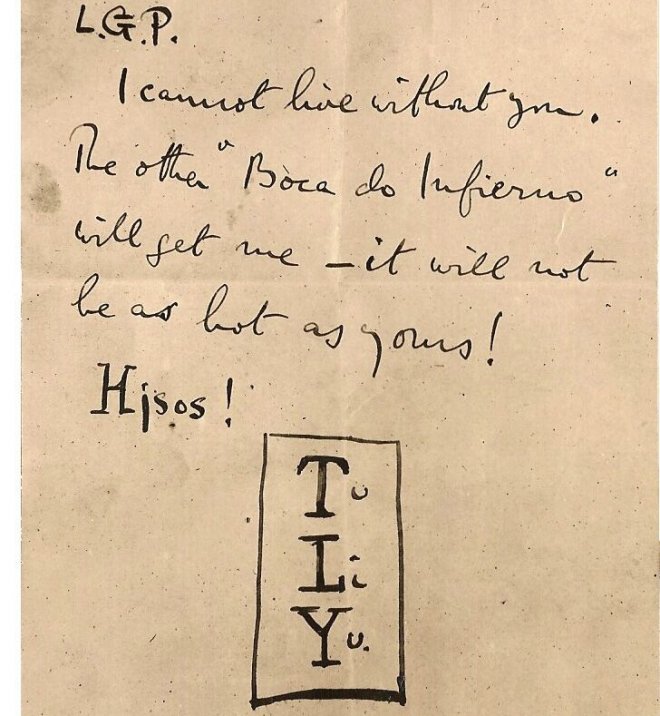 L.G.P.
I cannot live without you.
The other "Boca do Infierno"
will get me – it will not
be as hot as yours!
Hjsos!
Tu
Li
Yu.